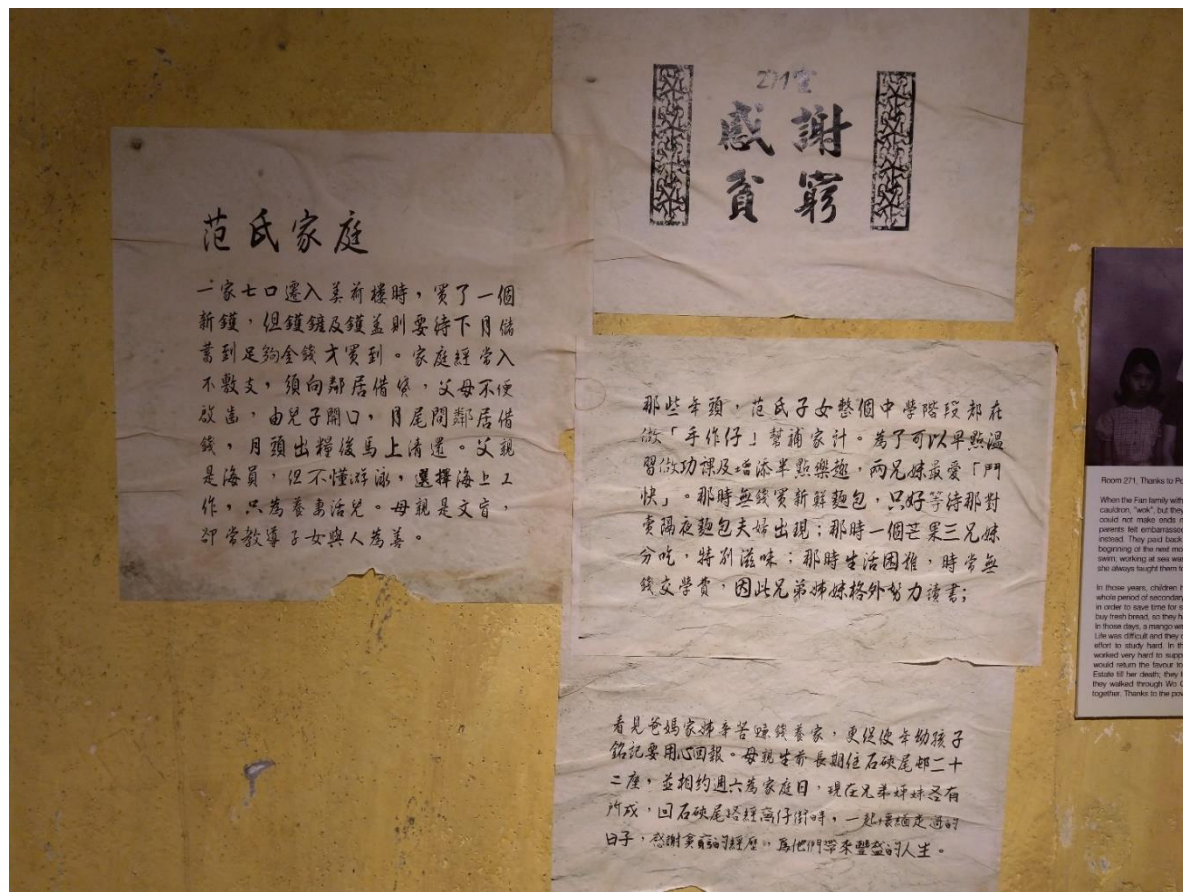 271室
感謝
貧窮
范氏家庭
一家七口遷入美荷樓時，買了一個
新鑊，但鑊鏟及鑊蓋則要待下月儲
蓄到足夠金錢才買到。家庭經常入
不敷支，須向鄰居借貸，父母不便
啟齒，由兒子開口，月尾問鄰居借
錢，月頭出糧後馬上清還。父親
是海員，但不懂游泳，選擇海上工
作，只為養妻活兒。母親是文盲，
卻常教導子女與人為善。
那些年頭，范氏子女整個中學階段都在
做「手作仔」幫補家計。為了可以早點溫
習做功課及增添半點樂趣，兩兄妹最愛「鬥
快」。那時無錢買新鮮麵包，只好等待那對
賣隔夜麵包夫婦出現；那時一個芒果三兄妹
分吃，特別滋味；那時生活困難，時常無
錢交學費，因此兄弟姊妹格外努力讀書；
看見爸媽家姊辛苦賺錢養家，更促使年幼孩子
銘記要用心回報。母親生前長期住石硤尾邨二十
二座，並相約週六為家庭日，現在兄弟姊妹各有
所成，回石硤尾路經窩仔街時，一起懷緬走過的
日子，感謝貧窮的經歷，為他們帶來豐盛的人生。
Room 271, Thanks to
When the Fan family
cauldron, "wok", but they
could not make ends
parents felt embarrassed
instead. They paid back
beginning of the next
swim; working at sea
she always taught them
In those years, children
whole period of secondary
in order to save time for
buy fresh bread, so they
In those days, a mango
Life was difficult and they
effort to study hard. In
worked very hard to
would return the favour
Estate till her death; they
they walked through Wo
together. Thanks to the